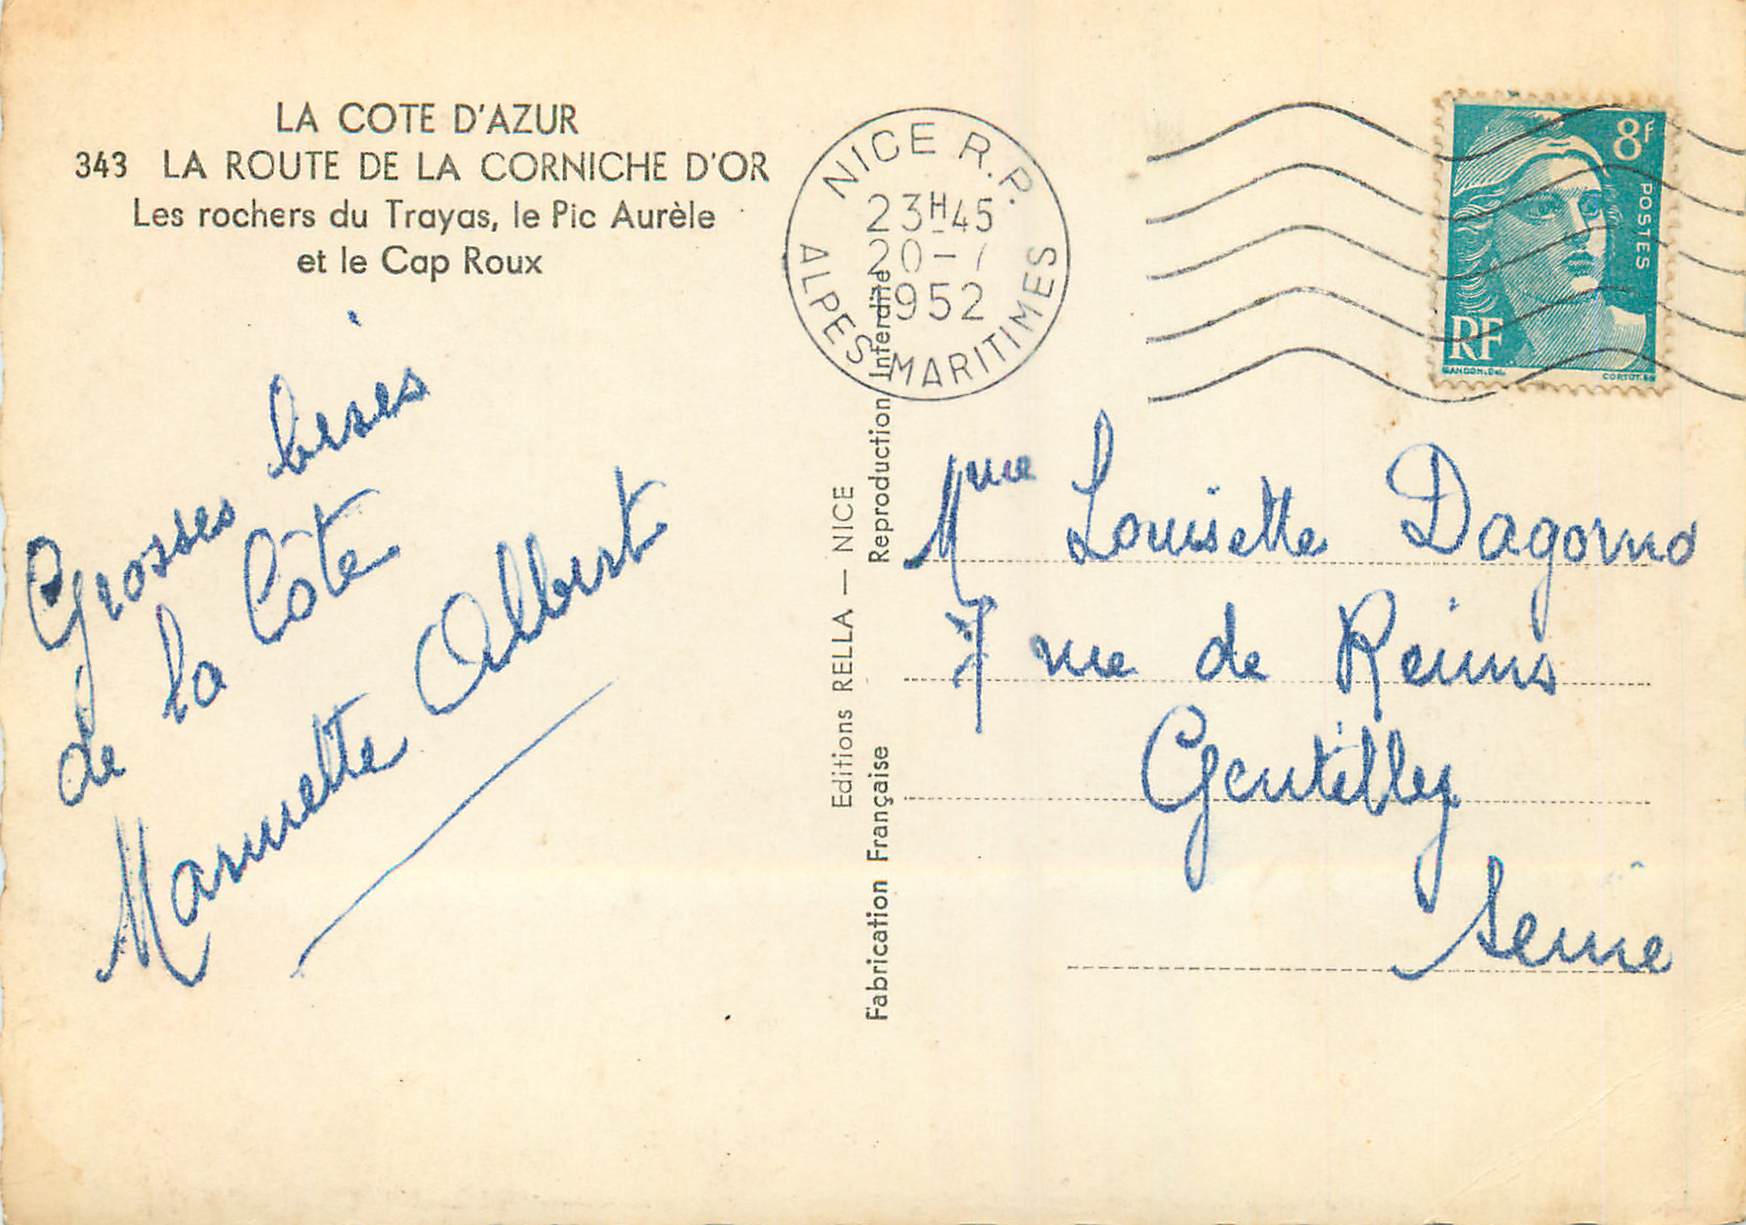 LA COTE D'AZUR
343 LA ROUTE DE LA CORNICHE D'OR
Les rochers du Trayas, le Pic Aurèle
et le Cap Roux
Grosses bises
de la Côte
Albert
NICE R.P.
23H45
20-7
1952
ALPES MARITIMES
8f
POSTES
RF
GANDON. Del.
CORTOT. Sc
Editions RELLA — NICE
Fabrication Française
Reproduction Interdite
Mme Louisette Dagorno
7 rue de Reims
Gentilly
Seine